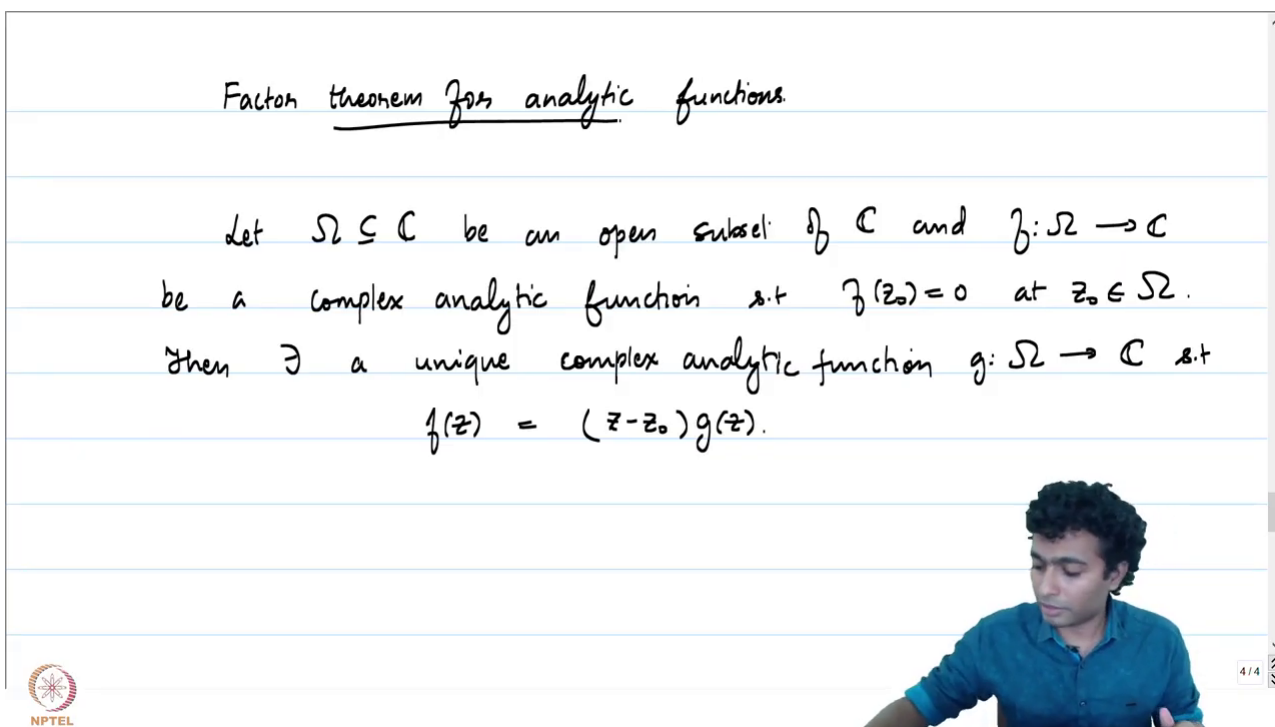 Factor theorem for analytic functions.
Let Ω ⊆ ℂ be an open subset of ℂ and f: Ω → ℂ
be a complex analytic function s.t f(z₀) = 0 at z₀ ∈ Ω.
Then ∃ a unique complex analytic function g: Ω → ℂ s.t
f(z) = (z-z₀) g(z).
4 / 4
NPTEL